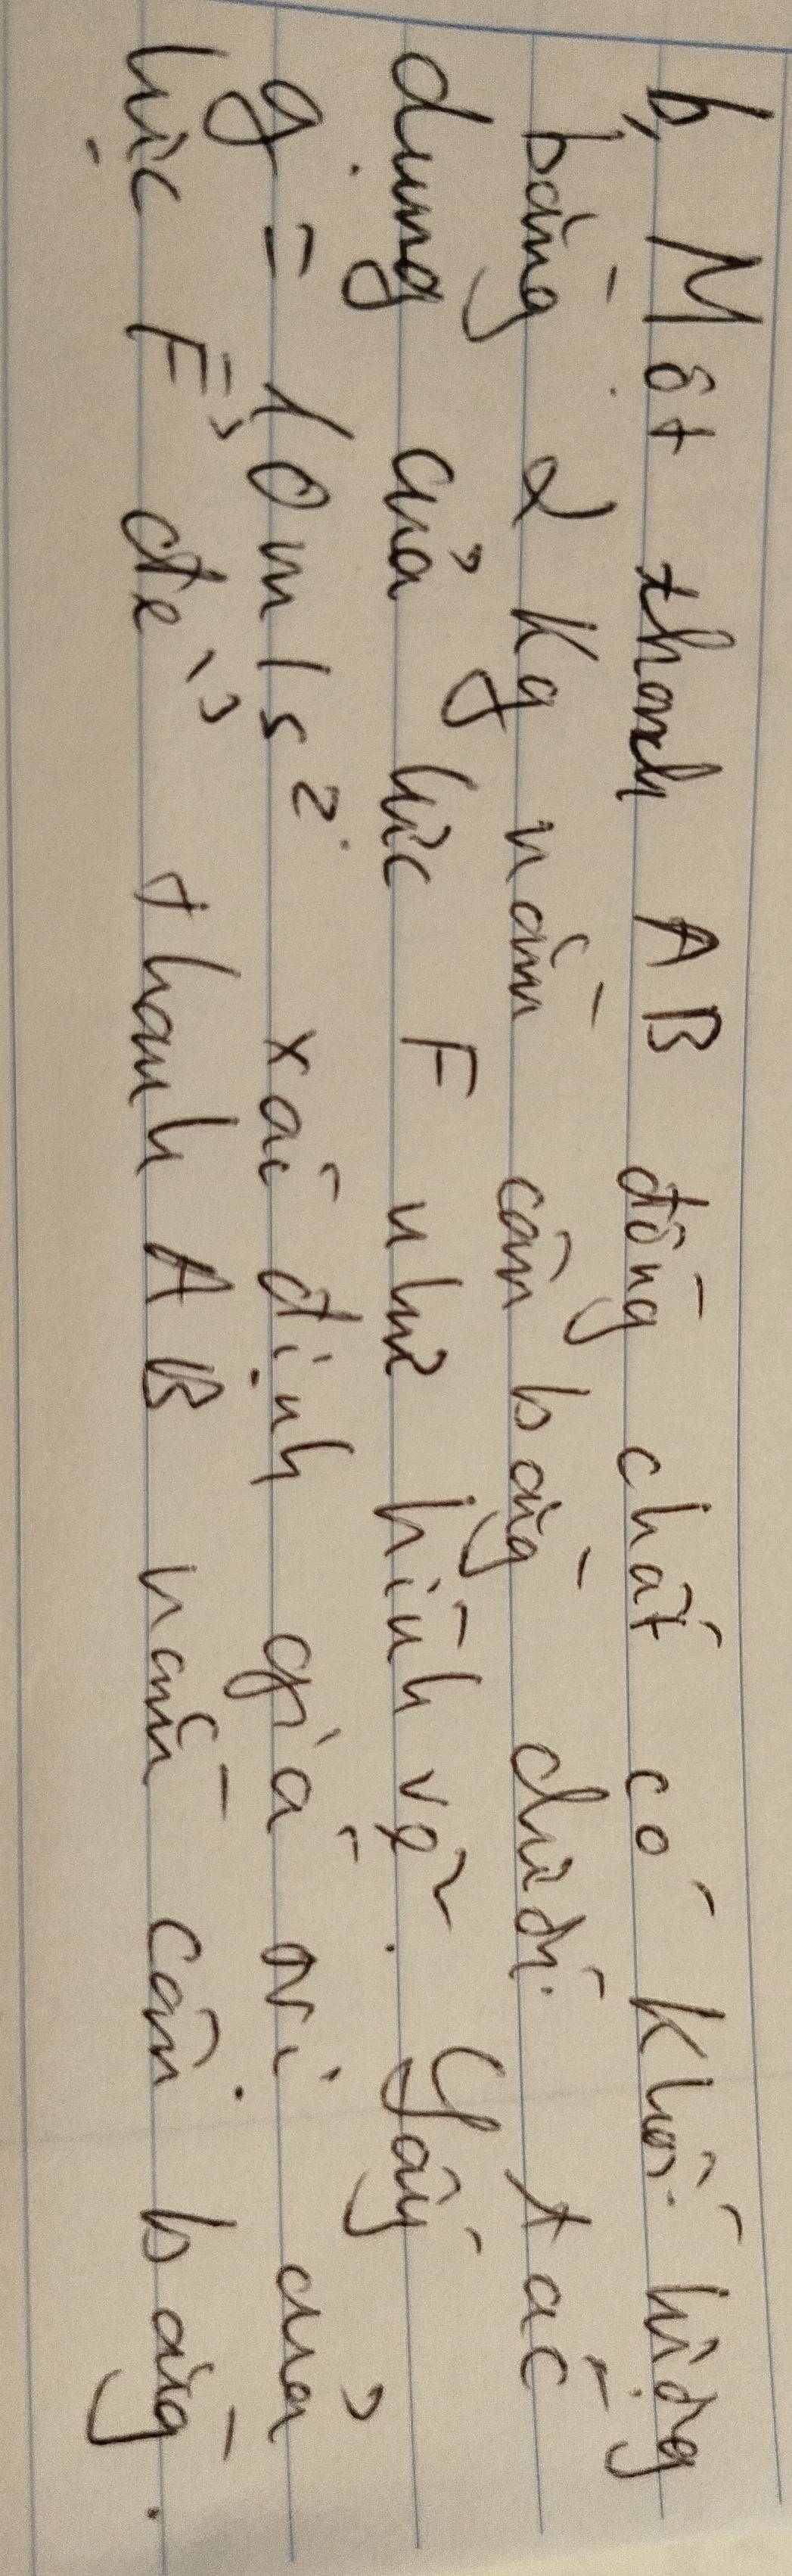 b, Một thanh AB đồng chất có khối lượng
bằng 2 kg nằm cân bằng dưới tác
dụng của lực F như hình vẽ. Lấy
g = 10 m/s². xác định giá trị của
lực F, để thanh AB nằm cân bằng.